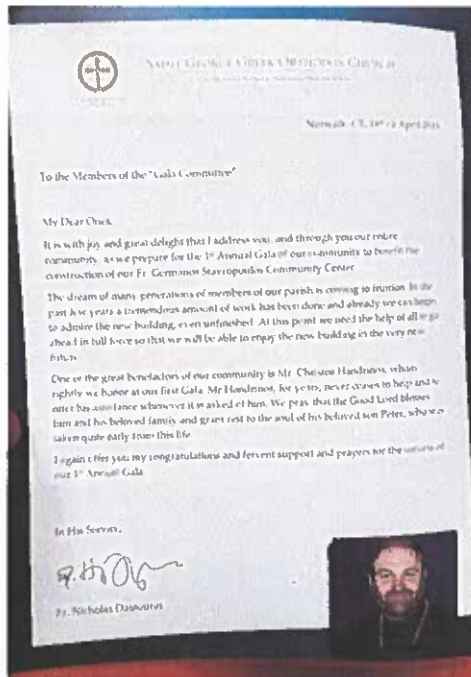 SAINT GEORGE GREEK ORTHODOX CHURCH
Norwalk, CT, April
To the Members of the "Gala Committee"
My Dear Ones,
It is with joy and great delight that I address you, and through you our entire
community, as we prepare for the 1st Annual Gala of our community to benefit the
construction of our Fr. Germanos Stavropoulos Community Center.
The dream of many generations of members of our parish is coming to fruition. In the
past few years a tremendous amount of work has been done and already we can begin
to admire the new building, even unfinished. At this point we need the help of all to go
ahead in full force so that we will be able to enjoy the new building in the very near
future.
One of the great benefactors of our community is Mr. Christos Handrinos, whom
rightly we honor at our first Gala. Mr Handrinos, for years, never ceases to help and to
offer his assistance whenever it is asked of him. We pray that the Good Lord blesses
him and his beloved family and grant rest to the soul of his beloved son Peter, who was
taken quite early from this life.
I again offer you my congratulations and fervent support and prayers for the success of
our 1st Annual Gala.
In His Service,
Fr. Nicholas